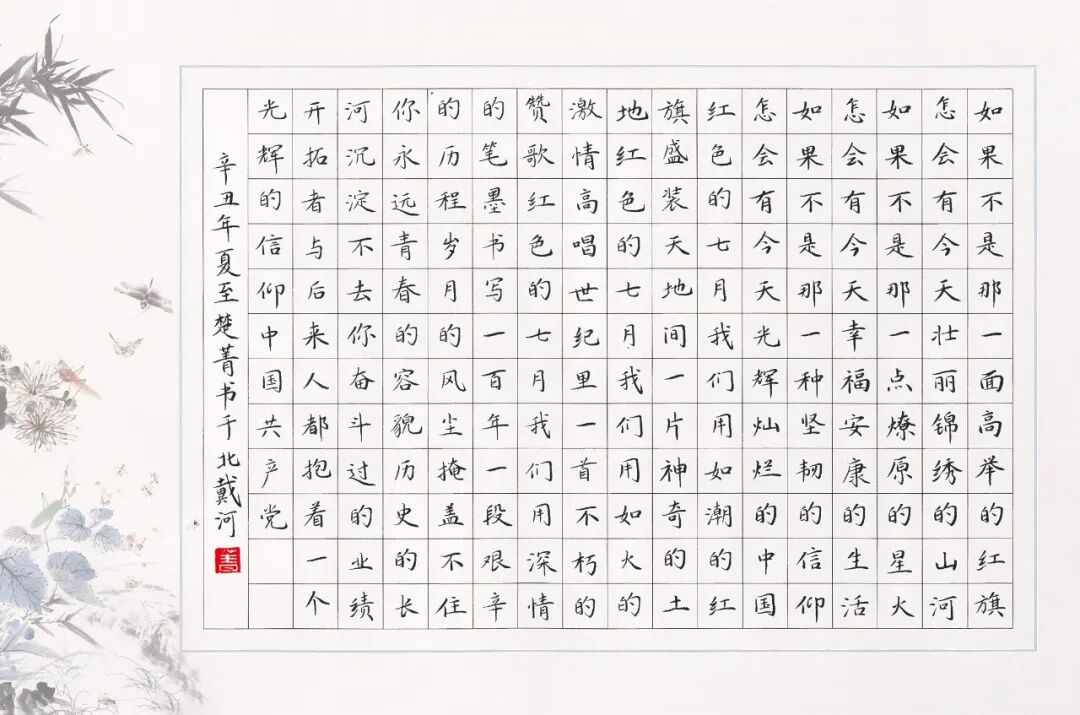 如果不是那一面高举的红旗
怎会有今天壮丽锦绣的山河
如果不是那一点燎原的星火
怎会有今天幸福安康的生活
如果不是那一种坚韧的信仰
怎会有今天光辉灿烂的中国
红色的七月我们用如潮的红
旗盛装天地间一片神奇的土
地红色的七月我们用如火的
激情高唱世纪里一首不朽的
赞歌红色的七月我们用深情
的笔墨书写一百年一段艰辛
的历程岁月的风尘掩盖不住
你永远青春的容貌历史的长
河沉淀不去你奋斗过的业绩
开拓者与后来人都抱着一个
光辉的信仰中国共产党
辛丑年夏至楚菁书于北戴河
菁